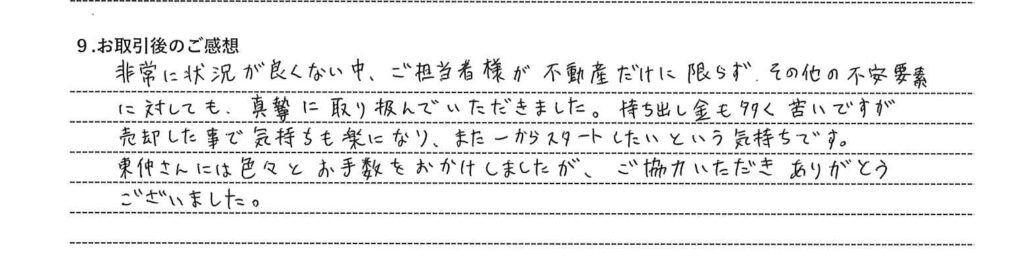 9.お取引後のご感想
非常に状況が良くない中、ご担当者様が不動産だけに限らず、その他の不安要素
に対しても、真摯に取り扱んでいただきました。持ち出し金も多く苦いですが
売却した事で気持ちも楽になり、また一からスタートしたいという気持ちです。
東仲さんには色々とお手数をおかけしましたが、ご協力いただきありがとう
ございました。